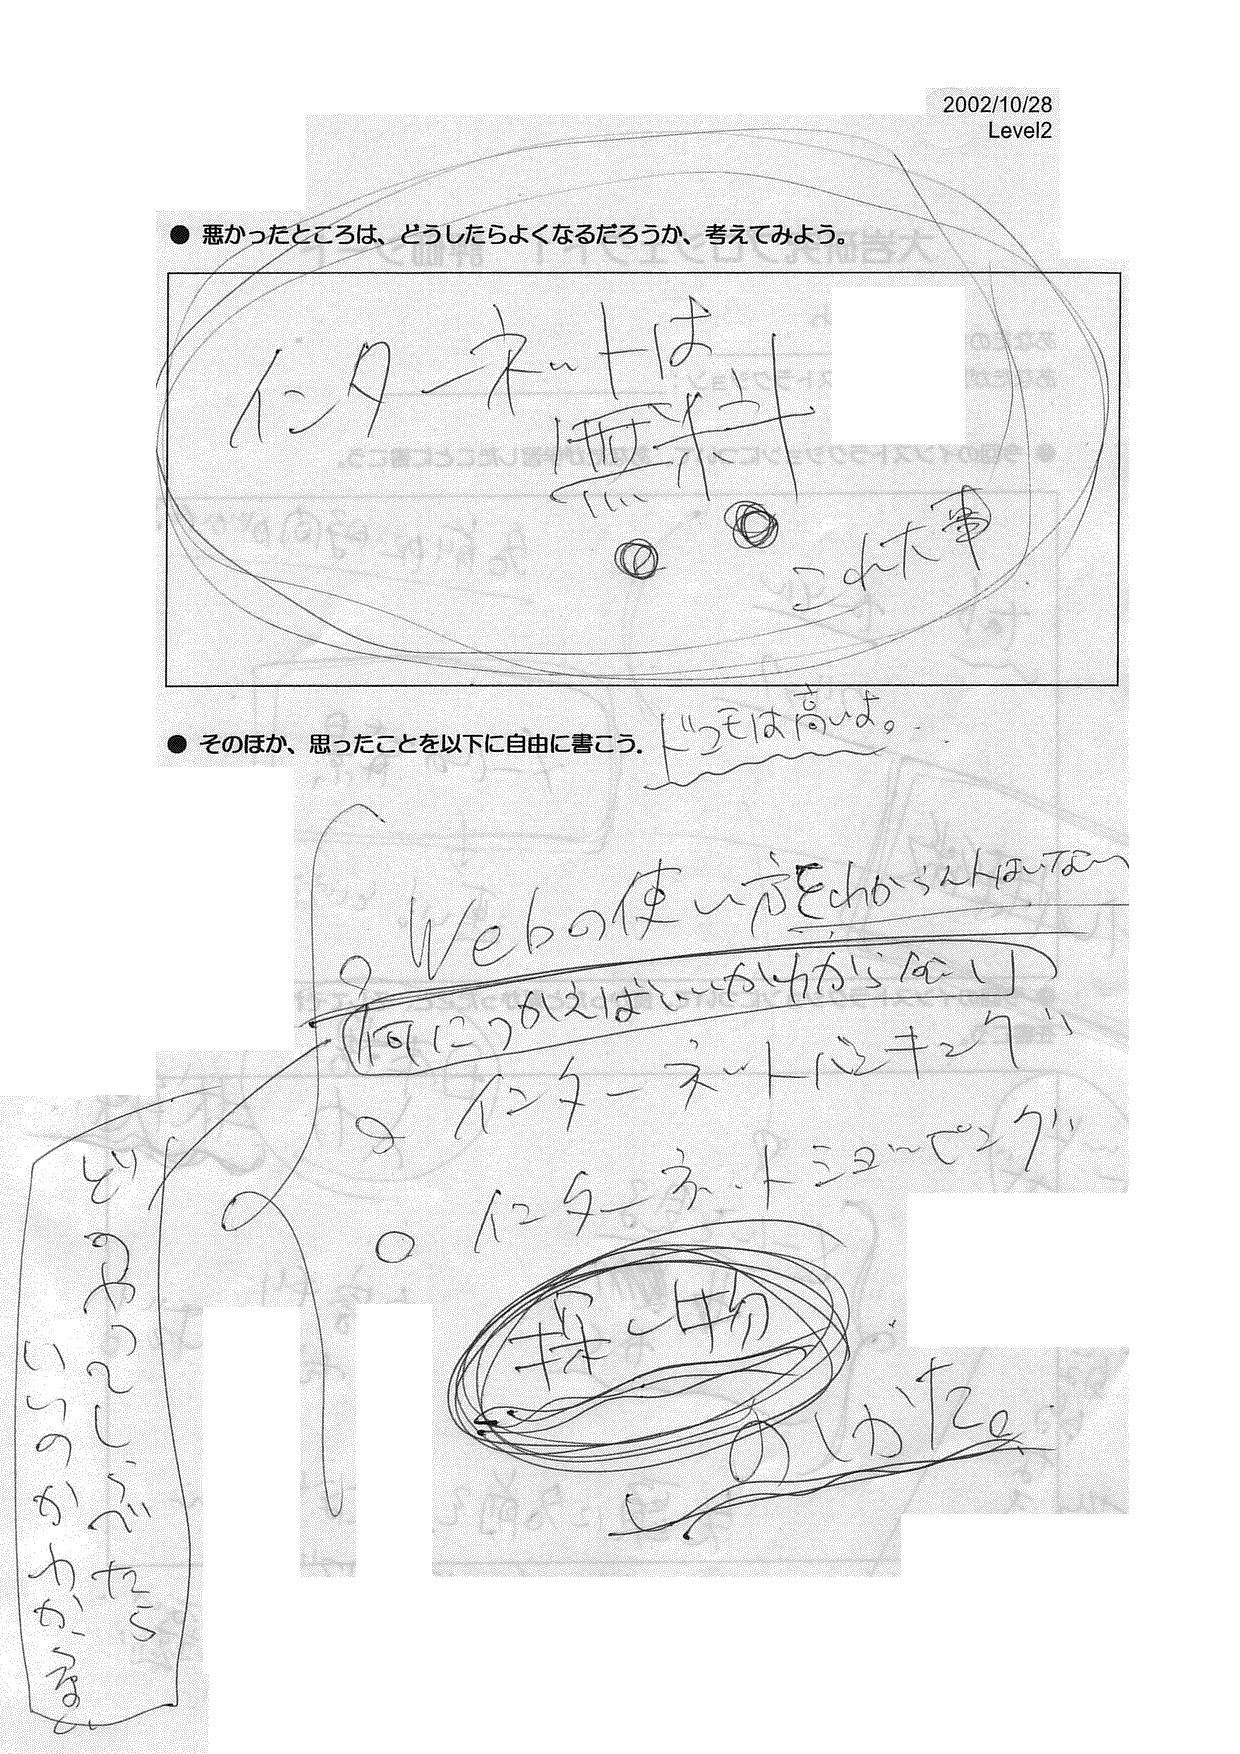 2002/10/28
Level2
● 悪かったところは、どうしたらよくなるだろうか、考えてみよう。
インターネットは
無料
これ大事
● そのほか、思ったことを以下に自由に書こう.
ドコモは高いよ。
Webの使い方を
何につかえばいいかわからない
インターネットバンキング
インターネットショッピング
探し物
のしかた。
どのやってしらべたら
いいのかわからない